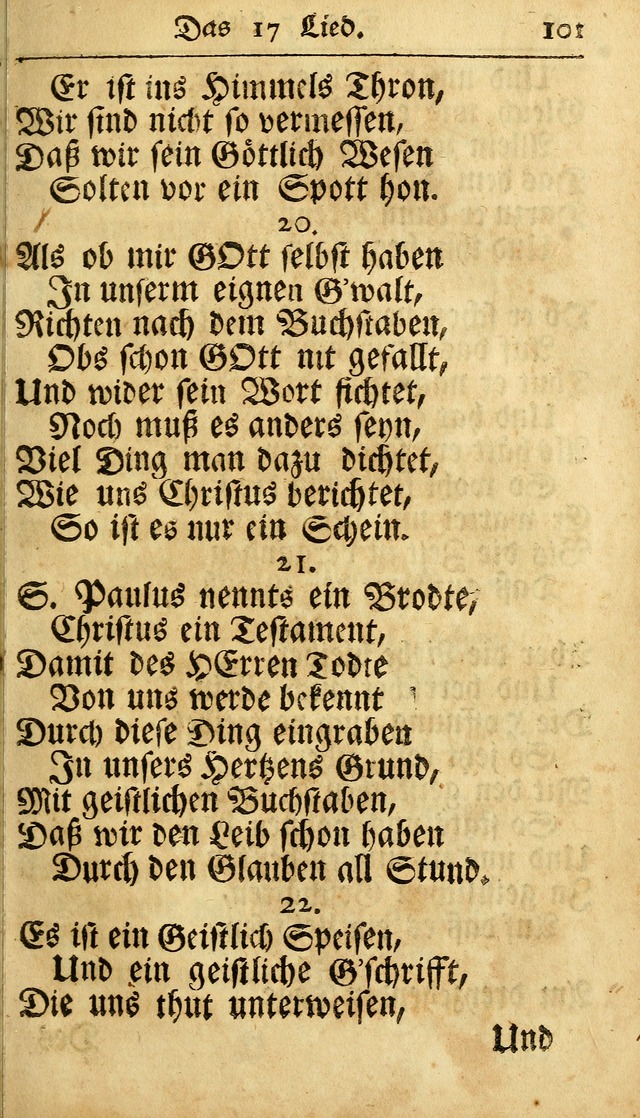 Das 17 Lied. 101
Er ist ins Himmels Thron,
Wir sind nicht so vermessen,
Daß wir sein Göttlich Wesen
Solten vor ein Spott hon.
20.
Als ob mir GOtt selbst haben
In unserm eignen G'walt,
Richten nach dem Buchstaben,
Obs schon GOtt nit gefallt,
Und wider sein Wort fichtet,
Noch muß es anders seyn,
Viel Ding man dazu dichtet,
Wie uns Christus berichtet,
So ist es nur ein Schein.
21.
S. Paulus nennts ein Brodte,
Christus ein Testament,
Damit des HErren Todte
Von uns werde bekennt
Durch diese Ding eingraben
In unsers Hertzens Grund,
Mit geistlichen Buchstaben,
Daß wir den Leib schon haben
Durch den Glauben all Stund.
22.
Es ist ein Geistlich Speisen,
Und ein geistliche G'schrifft,
Die uns thut unterweisen,
Und